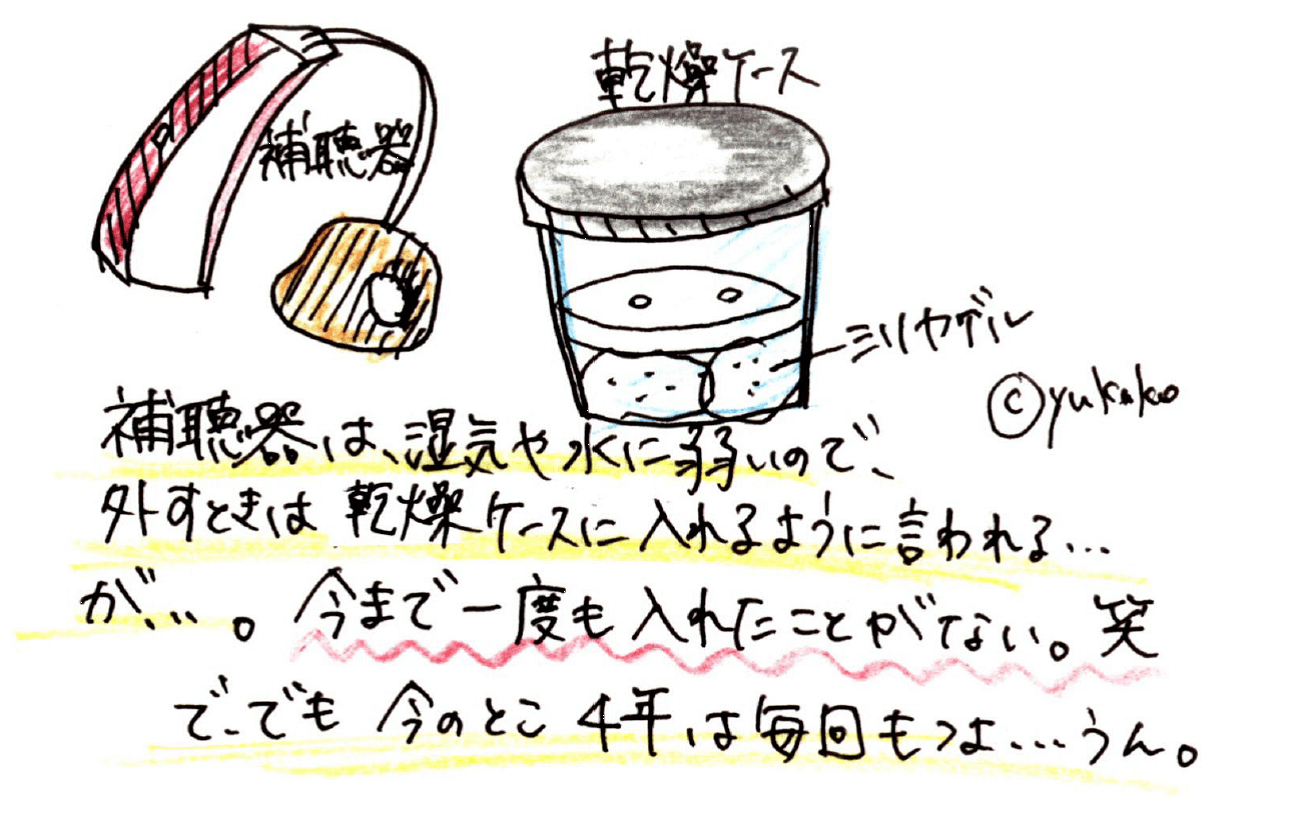 乾燥ケース
補聴器
シリカゲル
©yukako
補聴器は、湿気や水に弱いので、
外すときは 乾燥ケースに入れるように言われる…
が、…。今まで一度も入れたことがない。笑
で、でも 今のとこ 4年は毎回もつよ…うん。